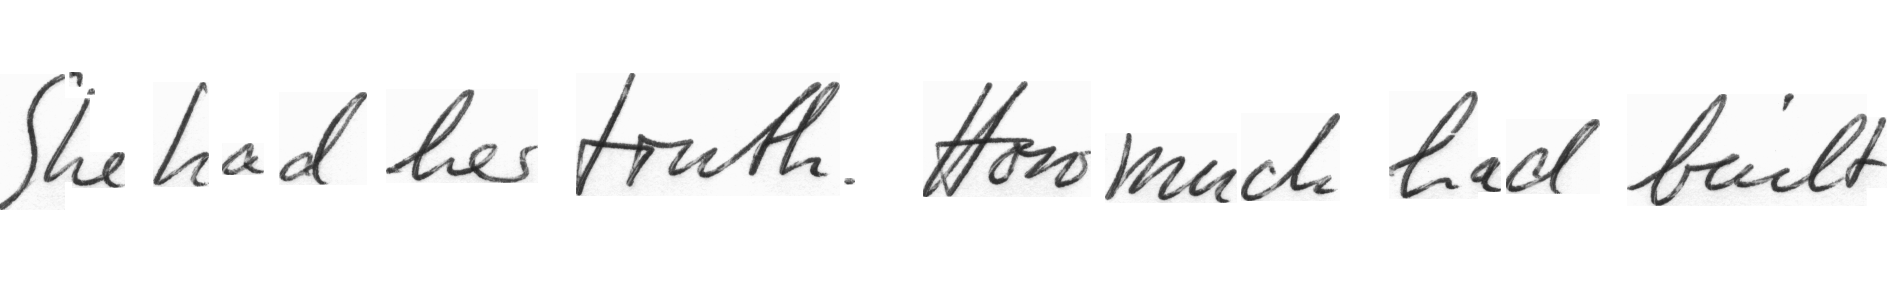 She had her truth. How much had built